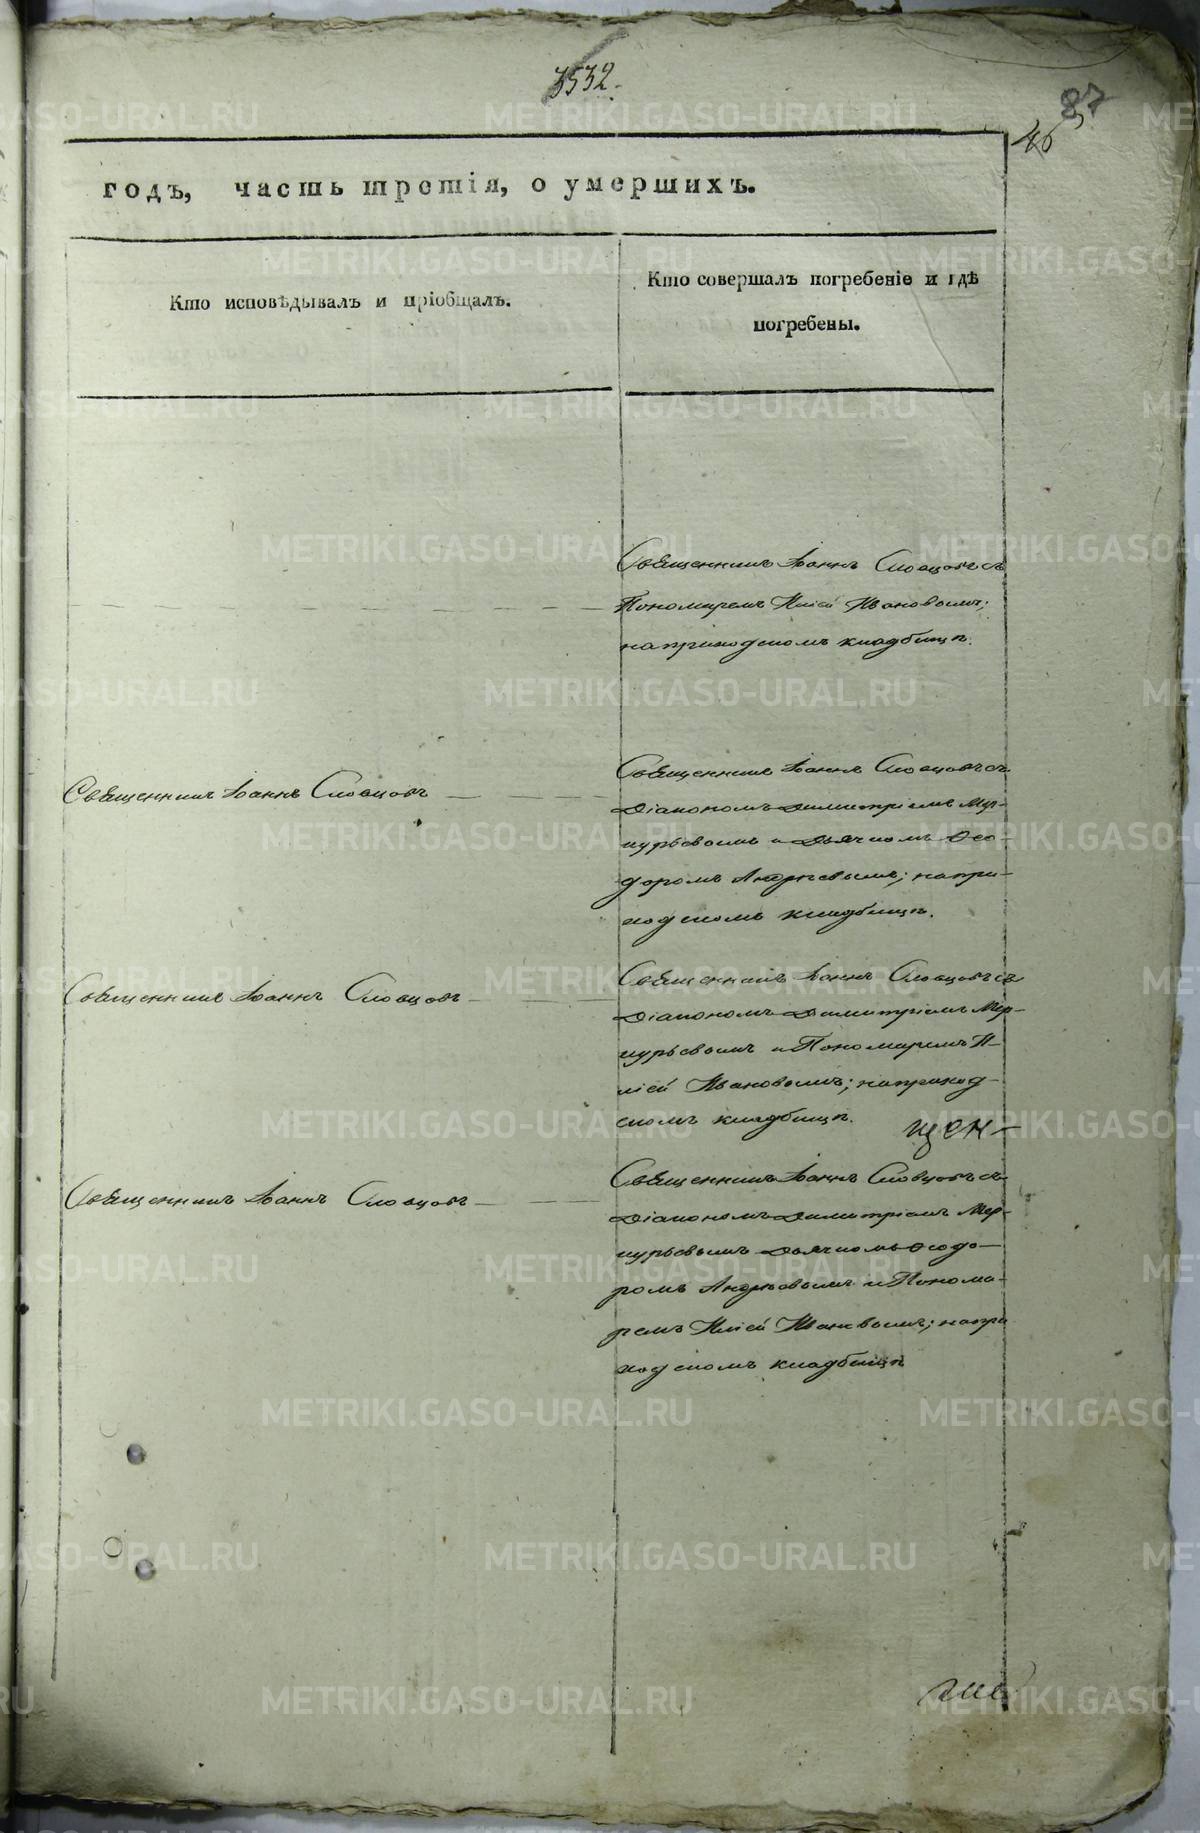 3532.
87
46
годъ, часть третія, о умершихъ.
Кто исповѣдывалъ и пріобщалъ.
Кто совершалъ погребеніе и гдѣ
погребены.
Священникъ Іоаннъ Словцовъ съ
Пономаремъ Иліей Ивановымъ;
на приходскомъ кладбищѣ.
Священникъ Іоаннъ Словцовъ
Священникъ Іоаннъ Словцовъ съ
Діакономъ Димитріемъ Мер-
курьевымъ и Дьячкомъ Ѳео-
доромъ Андреевымъ; на при-
ходскомъ кладбищѣ.
Священникъ Іоаннъ Словцовъ
Священникъ Іоаннъ Словцовъ съ
Діакономъ Димитріемъ Мер-
курьевымъ и Пономаремъ И-
ліей Ивановымъ; на приход-
скомъ кладбищѣ.
щен-
Священникъ Іоаннъ Словцовъ
Священникъ Іоаннъ Словцовъ съ
Діакономъ Димитріемъ Мер-
курьевымъ Дьячкомъ Ѳеодо-
ромъ Андреевымъ и Понома-
ремъ Иліей Ивановымъ; на при
ходскомъ кладбищѣ
METRIKI.GASO-URAL.RU